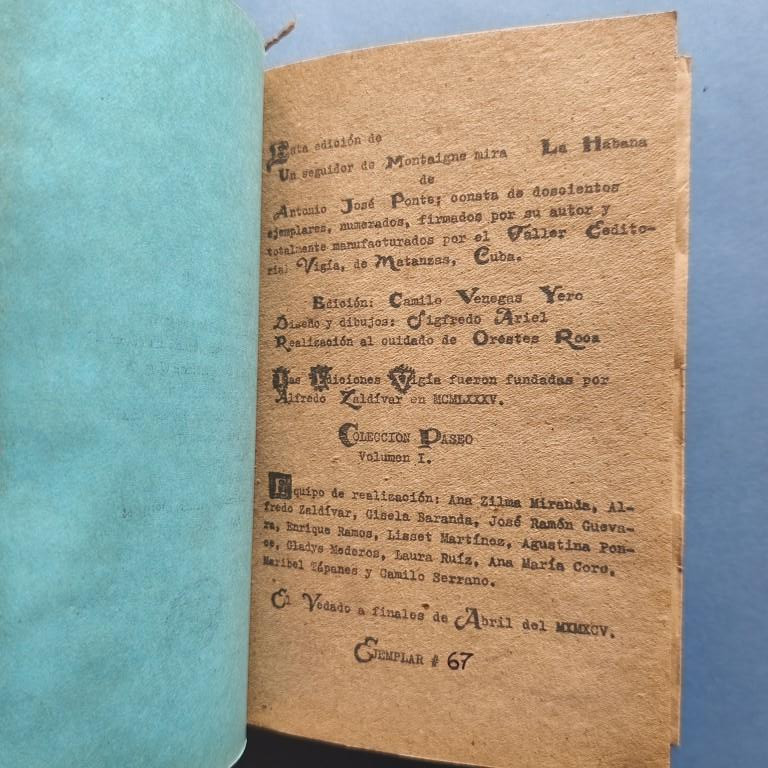 Esta edición de
Un seguidor de Montaigne mira La Habana
de
Antonio José Ponte; consta de doscientos
ejemplares, numerados, firmados por su autor y
totalmente manufacturados por el Taller Eedito-
rial Vigía, de Matanzas, Cuba.
Edición: Camilo Venegas Yero
Diseño y dibujos: Sigfredo Ariel
Realización al cuidado de Orestes Roca
Las Ediciones Vigía fueron fundadas por
Alfredo Zaldívar en MCMLXXXV.
COLECCION PASEO
Volumen I.
Equipo de realización: Ana Zilma Miranda, Al-
fredo Zaldívar, Gisela Baranda, José Ramón Gueva-
ra, Enrique Ramos, Lisset Martínez, Agustina Pon-
ce, Gladys Mederos, Laura Ruíz, Ana María Coro,
Maribel Tápanes y Camilo Serrano.
El Vedado a finales de Abril del MXMXCV.
EJEMPLAR # 67